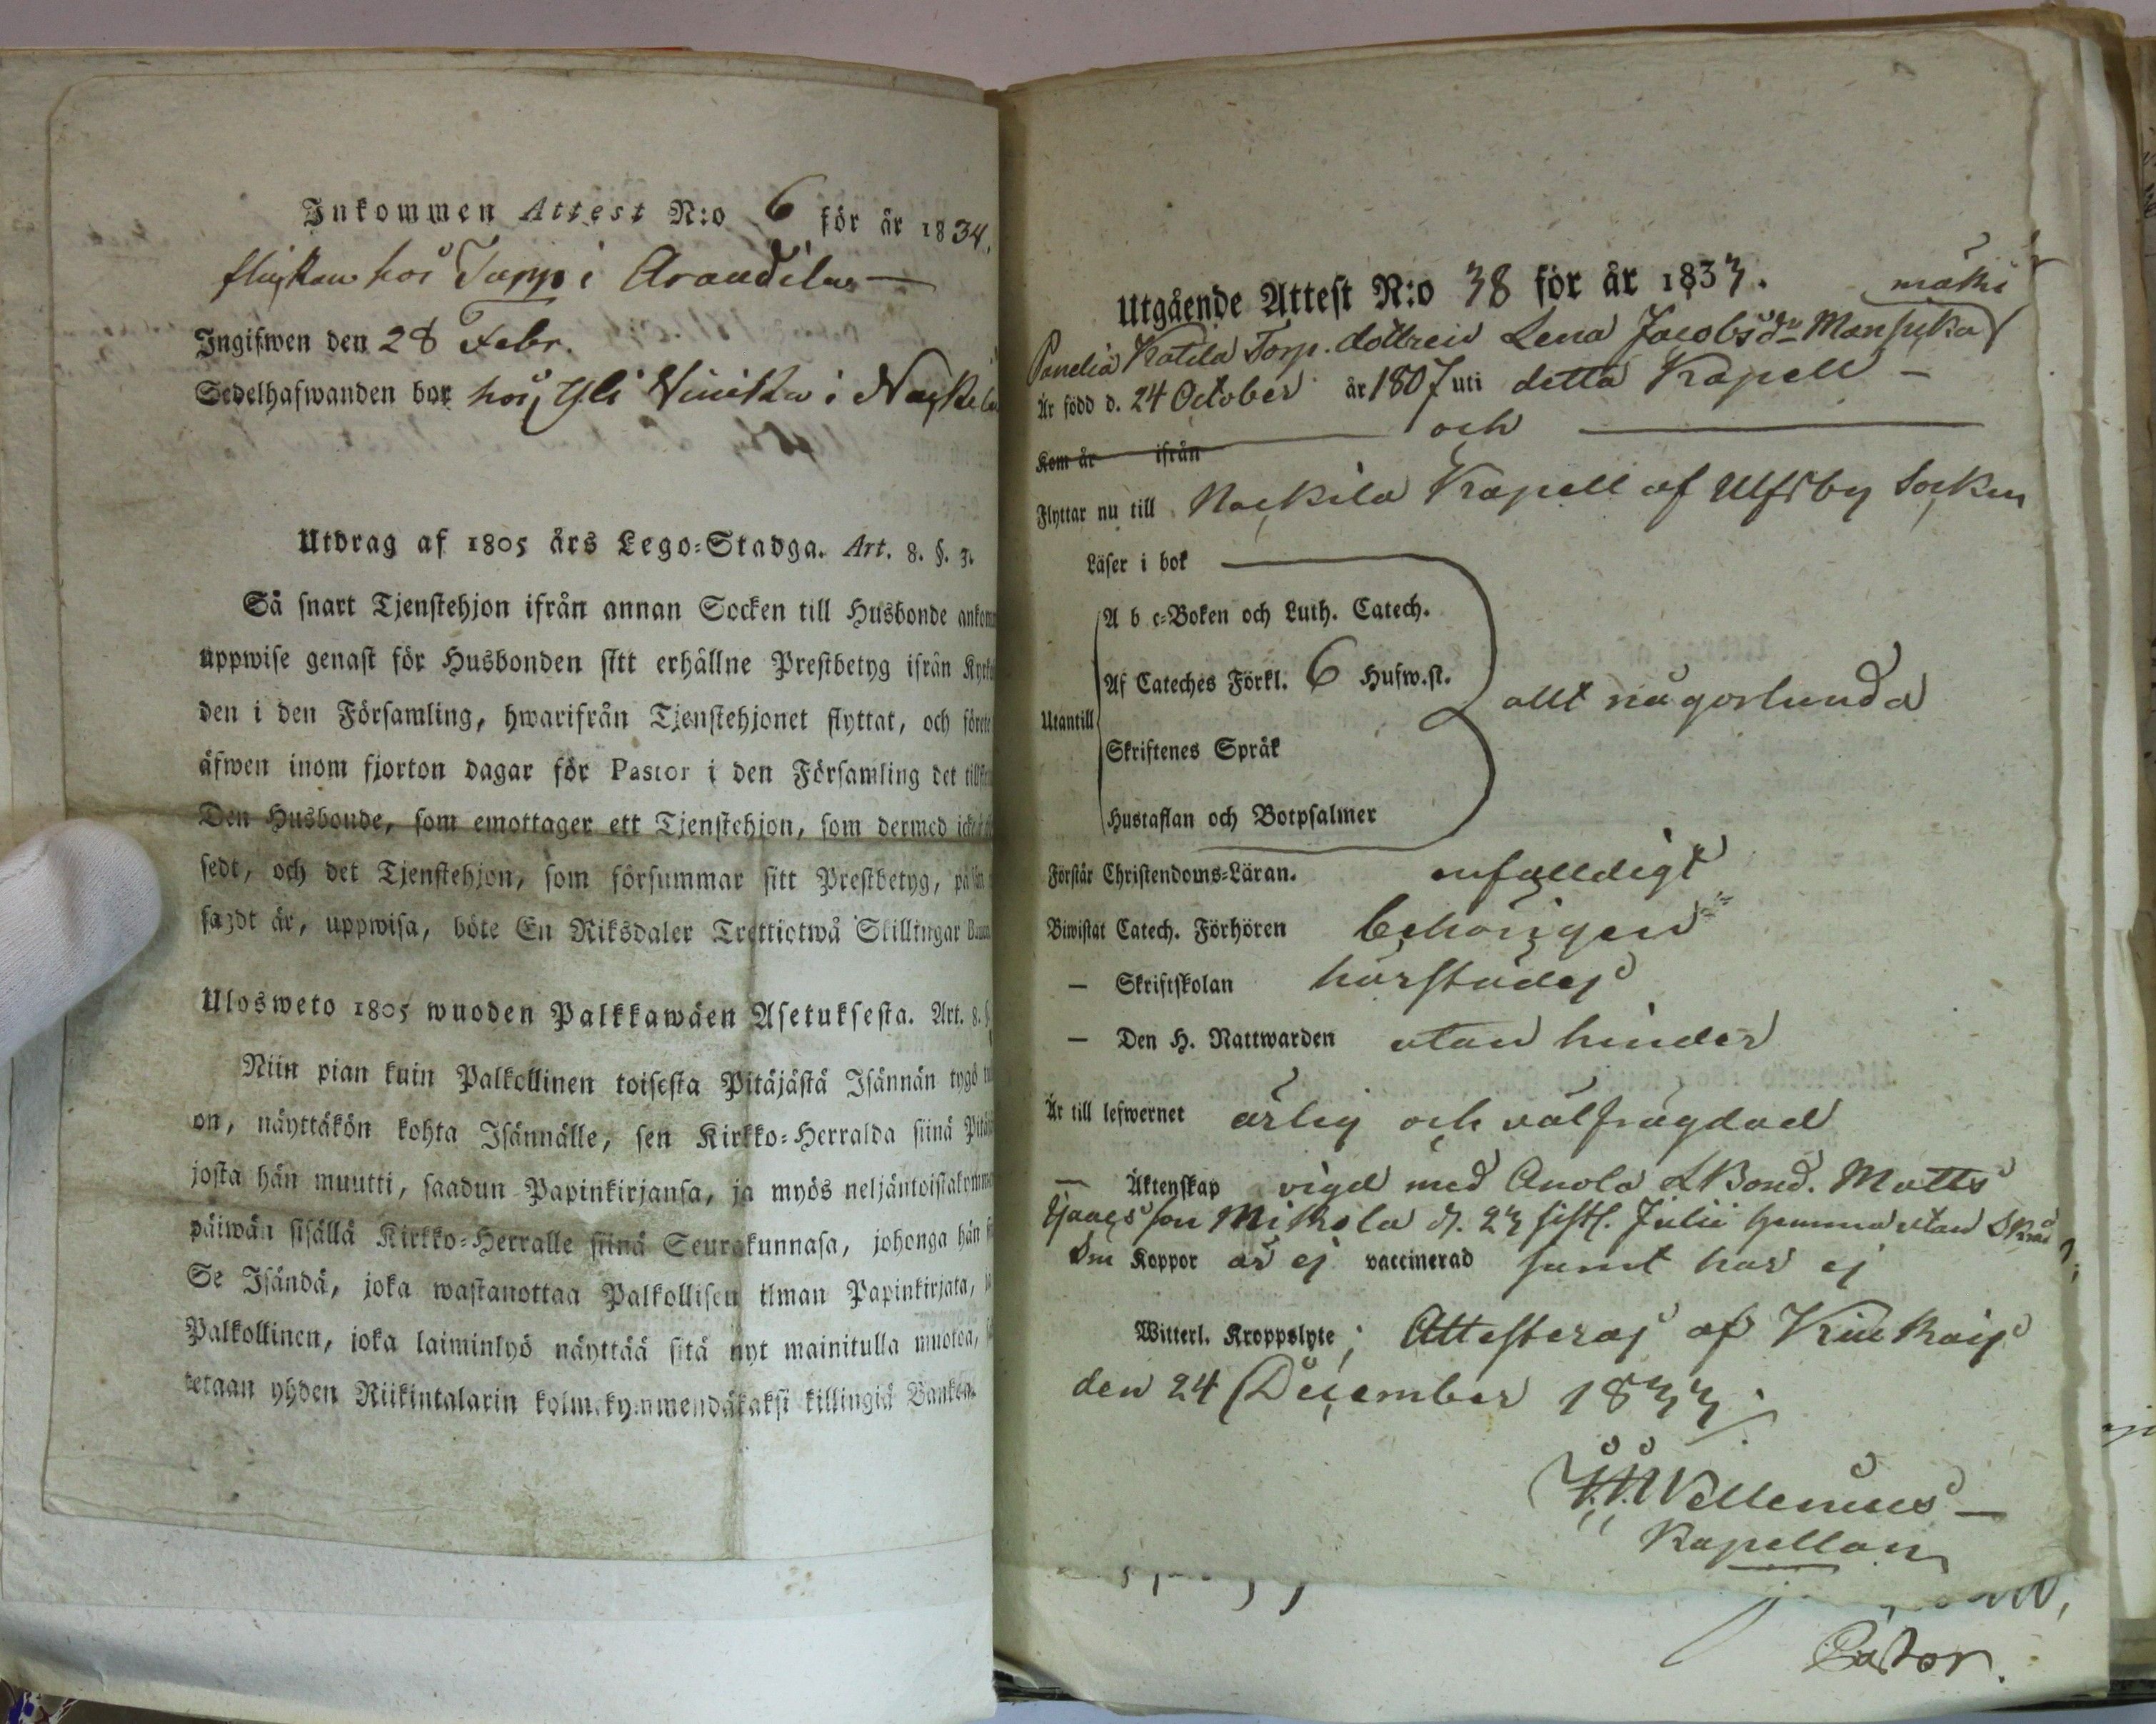 Inkommen Attest N:o 6 för år 1834.
hos Tuppi i Arandila —
Ingifwen den 28 Febr.
Sedelhafwanden bor hos Yli Viniku i
Utdrag af 1805 års Lego-Stadga. Art. 8. §. 3.
Så snart Tjenstehjon ifrån annan Socken till Husbonde
uppwise genast för Husbonden sitt erhållne Prestbetyg ifrån
den i den Församling, hwarifrån Tjenstehjonet flyttat, och
äfwen inom fjorton dagar för Pastor i den Församling det
Den Husbonde, som emottager ett Tjenstehjon, som dermed
sedt, och det Tjenstehjon, som försummar sitt Prestbetyg, på
sagdt är, uppwisa, böte En Riksdaler Trettiotwå Skillingar
Ulosweto 1805 wuoden Palkkawäen Asetuksesta. Art. 8.
Niin pian kuin Palkollinen toisesta Pitäjästä Isännän tygö
on, näyttäkön kohta Isännälle, sen Kirkko-Herralda siinä
josta hän muutti, saadun Papinkirjansa, ja myös
päiwän sisällä Kirkko-Herralle siinä Seurakunnasa, johonga hän
Se Isändä, joka wastanottaa Palkollisen ilman Papinkirjata,
Palkollinen, joka laiminlyö näyttää sitä nyt mainitulla muotoa,
tetaan yhden Riikintalarin kolmekymmendäkaksi killingiä
Utgående Attest N:o 38 för år 1833.
mäki
Panelia Katila Torp. dottren Lena Jacobsdr Mansika
Är född d. 24 October år 1807 uti detta Kapell —
Kom år ifrån — och —
Flyttar nu till Nackila Kapell af Ulfsby Socken
Läser i bok
A b c-Boken och Luth. Catech.
Af Cateches Förkl. 6 Hufw.st.
allt någorlunda
Utantill
Skriftenes Språk
Hustaflan och Botpsalmer
Förstår Christendoms-Läran. enfalldigt
Biwistat Catech. Förhören behörigen
— Skriftskolan härstädes
— Den H. Nattwarden utan hinder
Är till lefwernet ärlig och välfrägdad
— Äktenskap vigd med Anola Bond. Matts
son Mikola d. 23 sistl. Julii hemma utan
Om Koppor är ej vaccinerad samt har ej
Witterl. Kroppslyte; Attesteras af Kiukais
den 24 December 1833.
Wellenius —
Kapellan
Pastor.